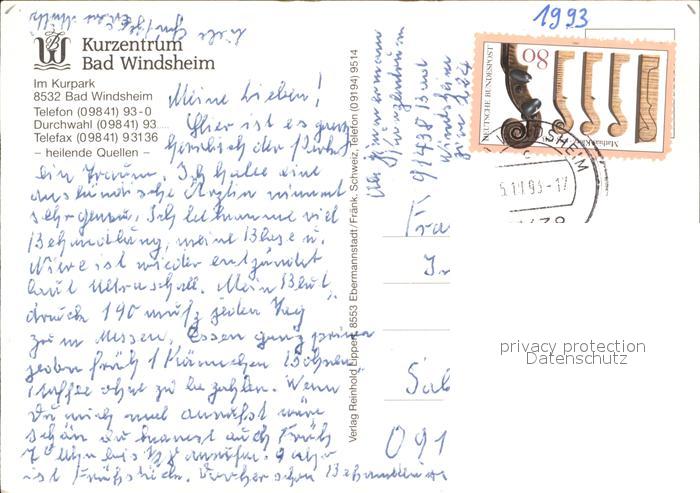 1993
Kurzentrum
Bad Windsheim
Im Kurpark
8532 Bad Windsheim
Telefon (09841) 93-0
Durchwahl (09841) 93
Telefax (09841) 93136
– heilende Quellen –
Meine Lieben!
Hier ist es ganz
herrlich der
ein Traum. Ich habe eine
ausländische Ärztin nimmt
sehr genau. Ich bekomme viel
Behandlung, meine Blase u.
Niere ist wieder entzündet
laut Ultraschall. Mein Blut
druck 190 muß jeden Tag
zum Messen. Essen ganz prima
jeden früh 1 Kännchen Bohnen
Kaffee ohne zu bezahlen. Wenn
Du mich mal anrufst wäre
schön du kannst auch früh
7 Uhr bis anrufen. Uhr
ist Frühstück. Vorher schon Behandlung
Verlag Reinhold Lippert, 8553 Ebermannstadt/Fränk. Schweiz, Telefon (09194) 9514
Zimmermann
Kurzentrum
91438 Bad
Windsheim
Fra
Sal
091
DEUTSCHE BUNDESPOST
80
DSHEIM
11.93-17
privacy protection
Datenschutz